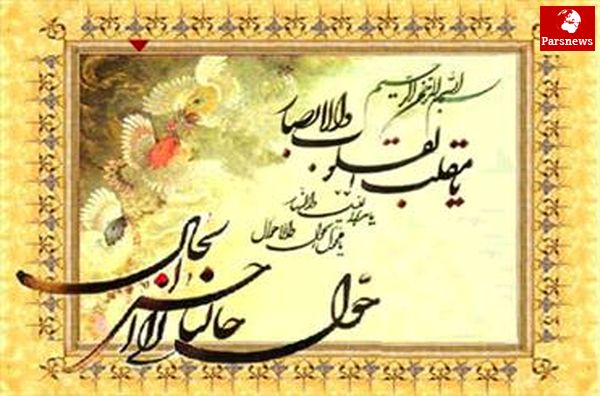 Parsnews
بسم الله الرحمن الرحیم
یا مقلب القلوب والابصار
یا مدبر اللیل والنهار
یا محول الحول والاحوال
حول حالنا الی احسن الحال